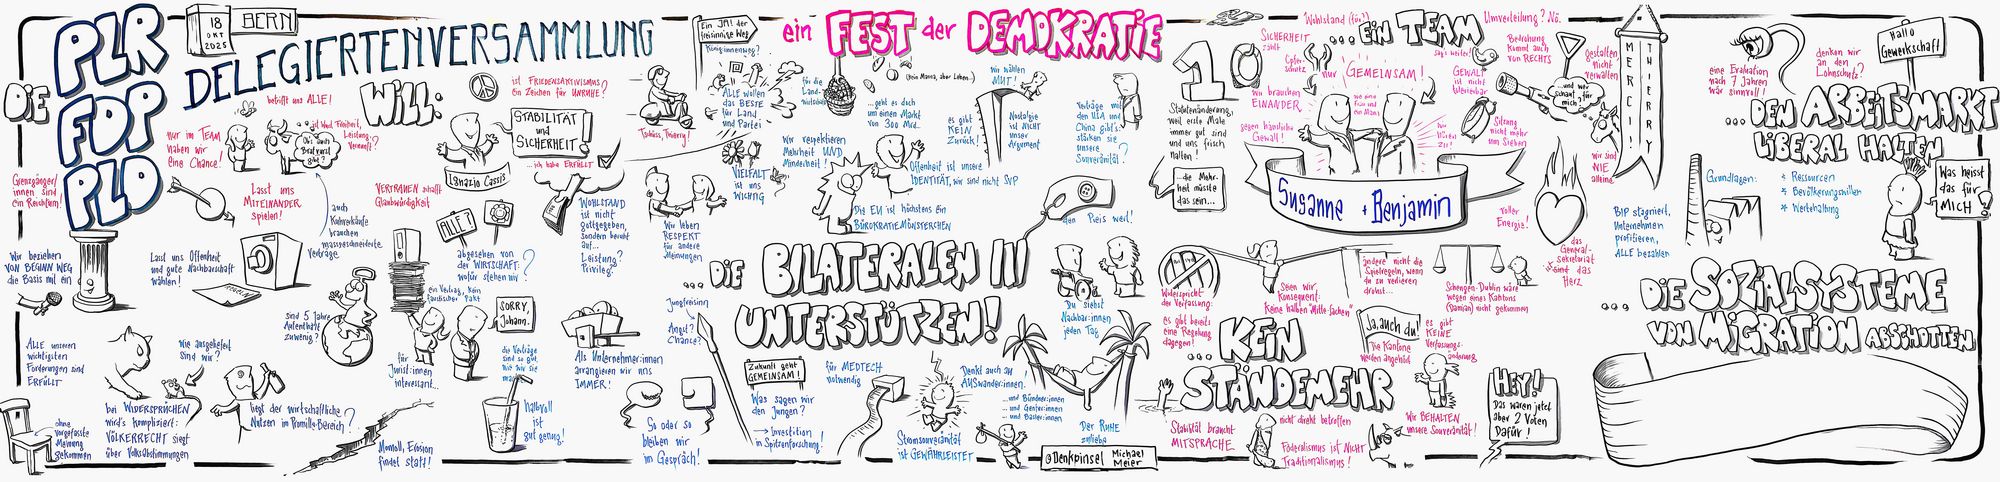 DIE
PLR
FDP
PLD
18
OKT
2025
BERN
DELEGIERTENVERSAMMLUNG
WILL:
betrifft uns ALLE!
nur im TEAM
haben wir
eine Chance!
Grenzgänger/
innen sind
ein Reichtum!
Wir beziehen
VON BEGINN WEG
die Basis mit ein
ALLE unsere
wichtigsten
Forderungen sind
ERFÜLLT
ohne
vorgefasste
Meinung
gekommen
bei WIDERSPRÜCHEN
wird's kompliziert:
VÖLKERRECHT siegt
über Volksabstimmungen
Wie ausgeliefert
sind wir?
Lasst uns
MITEINANDER
spielen!
Lasst uns Offenheit
und gute Nachbarschaft
wählen!
REGELN
auch
Kuhverkäufe
brauchen
massgeschneiderte
Verträge
VERTRAUEN schafft
Glaubwürdigkeit
sind 5 Jahre
Aufenthalt
zuwenig?
liegt der wirtschaftliche
Nutzen im Promille-Bereich?
Moment, Erosion
findet statt!
ist FRIEDENSAKTIVISMUS
ein Zeichen für UNRUHE?
STABILITÄT
und
SICHERHEIT!
...ich habe ERFÜLLT
Ignazio Cassis
ALLE?
abgesehen von
der WIRTSCHAFT:
wofür stehen wir?
WOHLSTAND
ist nicht
gottgegeben,
sondern beruht
auf...
Leistung?
Privileg?
SORRY,
Johann.
für
Jurist:innen
interessant...
halbvoll
ist
gut genug!
Als Unternehmer:innen
arrangieren wir uns
IMMER!
So oder so
bleiben wir
im Gespräch!
Tschüss, Thierry!
Ein JA! der
freisinnige Weg
König:innenweg?
ALLE wollen
das BESTE
für Land
und Partei
VIELFALT
ist uns
WICHTIG
Wir leben
RESPEKT
für andere
Meinungen
Jungfreisinn
Angst?
Chance?
Zukunft geht
GEMEINSAM!
Was sagen wir
den Jungen?
→ Investition
in Spitzenforschung!
ein FEST der DEMOKRATIE
für die
Land-
wirtschaft
...geht es doch
um einen Markt
von 300 Mrd...
Wir respektieren
Mehrheit UND
Minderheit!
Offenheit ist unsere
IDENTITÄT, wir sind nicht SVP
Die EU ist höchstens ein
BÜROKRATIEMÖNSTERCHEN
...DIE BILATERALEN III
UNTERSTÜTZEN!
für MEDTECH
notwendig
Stromsouveränität
ist GEWÄHRLEISTET
wir wählen
MUT!
es gibt
KEIN
Zurück!
Nostalgie
ist NICHT
unser
Argument
Verträge mit
den USA und
China gibt's:
stärken sie
unsere
Souveränität?
den Preis wert!
Du siehst
Nachbar:innen
jeden Tag
Denkt auch an
AUSwander:innen!
...und Bündner:innen
...und Genfer:innen
...und Basler:innen
Der RUHE
zuliebe
@Denkpinsel Michael
Meier
10
Statutenänderung,
weil erste Male
immer gut sind
und uns frisch
halten!
...die Mehr-
heit müsste
das sein...
Wohlstand (für?)
SICHERHEIT
zählt
Opfer-
schutz
wir brauchen
EINANDER
gegen häusliche
Gewalt!
...EIN TEAM
Umverteilung? Nö.
nur GEMEINSAM!
GEWALT
ist nicht
tolerierbar
Bedrohung
kommt auch
von RECHTS
gestalten
nicht
verwalten
...und wer
schaut für
mich?
Sitzung
nicht mehr
um Sieben!
wir sind
NIE
alleine
MERCI
THIERRY
Susanne + Benjamin
voller
Energie!
das
General-
sekretariat
ist das
Herz
Widerspricht
der Verfassung:
es gibt bereits
eine Regelung
dagegen!
Seien wir
konsequent:
Keine halben "Mitte-Sachen"
ändere nicht die
Spielregeln, wenn
du zu verlieren
drohst...
Schengen-Dublin wäre
wegen eines Kantons
(Damian) nicht gekommen
...KEIN
STÄNDEMEHR
Ja, auch du!
Die Kantone
werden angehört
es gibt
KEINE
Verfassungs-
änderung
Stabilität braucht
MITSPRACHE
nicht direkt betroffen
Föderalismus ist NICHT
Traditionalismus!
Wir BEHALTEN
unsere Souveränität!
HEY!
Das waren jetzt
aber 2 Voten
Dafür!
eine Evaluation
nach 7 Jahren
wär sinnvoll!
denken wir
an den
Lohnschutz?
Hallo
Gewerkschaft
...DEN ARBEITSMARKT
LIBERAL HALTEN
Grundlagen:
* Ressourcen
* Bevölkerungswillen
* Wertehaltung
Was heisst
das für
MICH?
BIP stagniert,
Unternehmen
profitieren,
ALLE bezahlen
...DIE SOZIALSYSTEME
VON MIGRATION ABSCHOTTEN